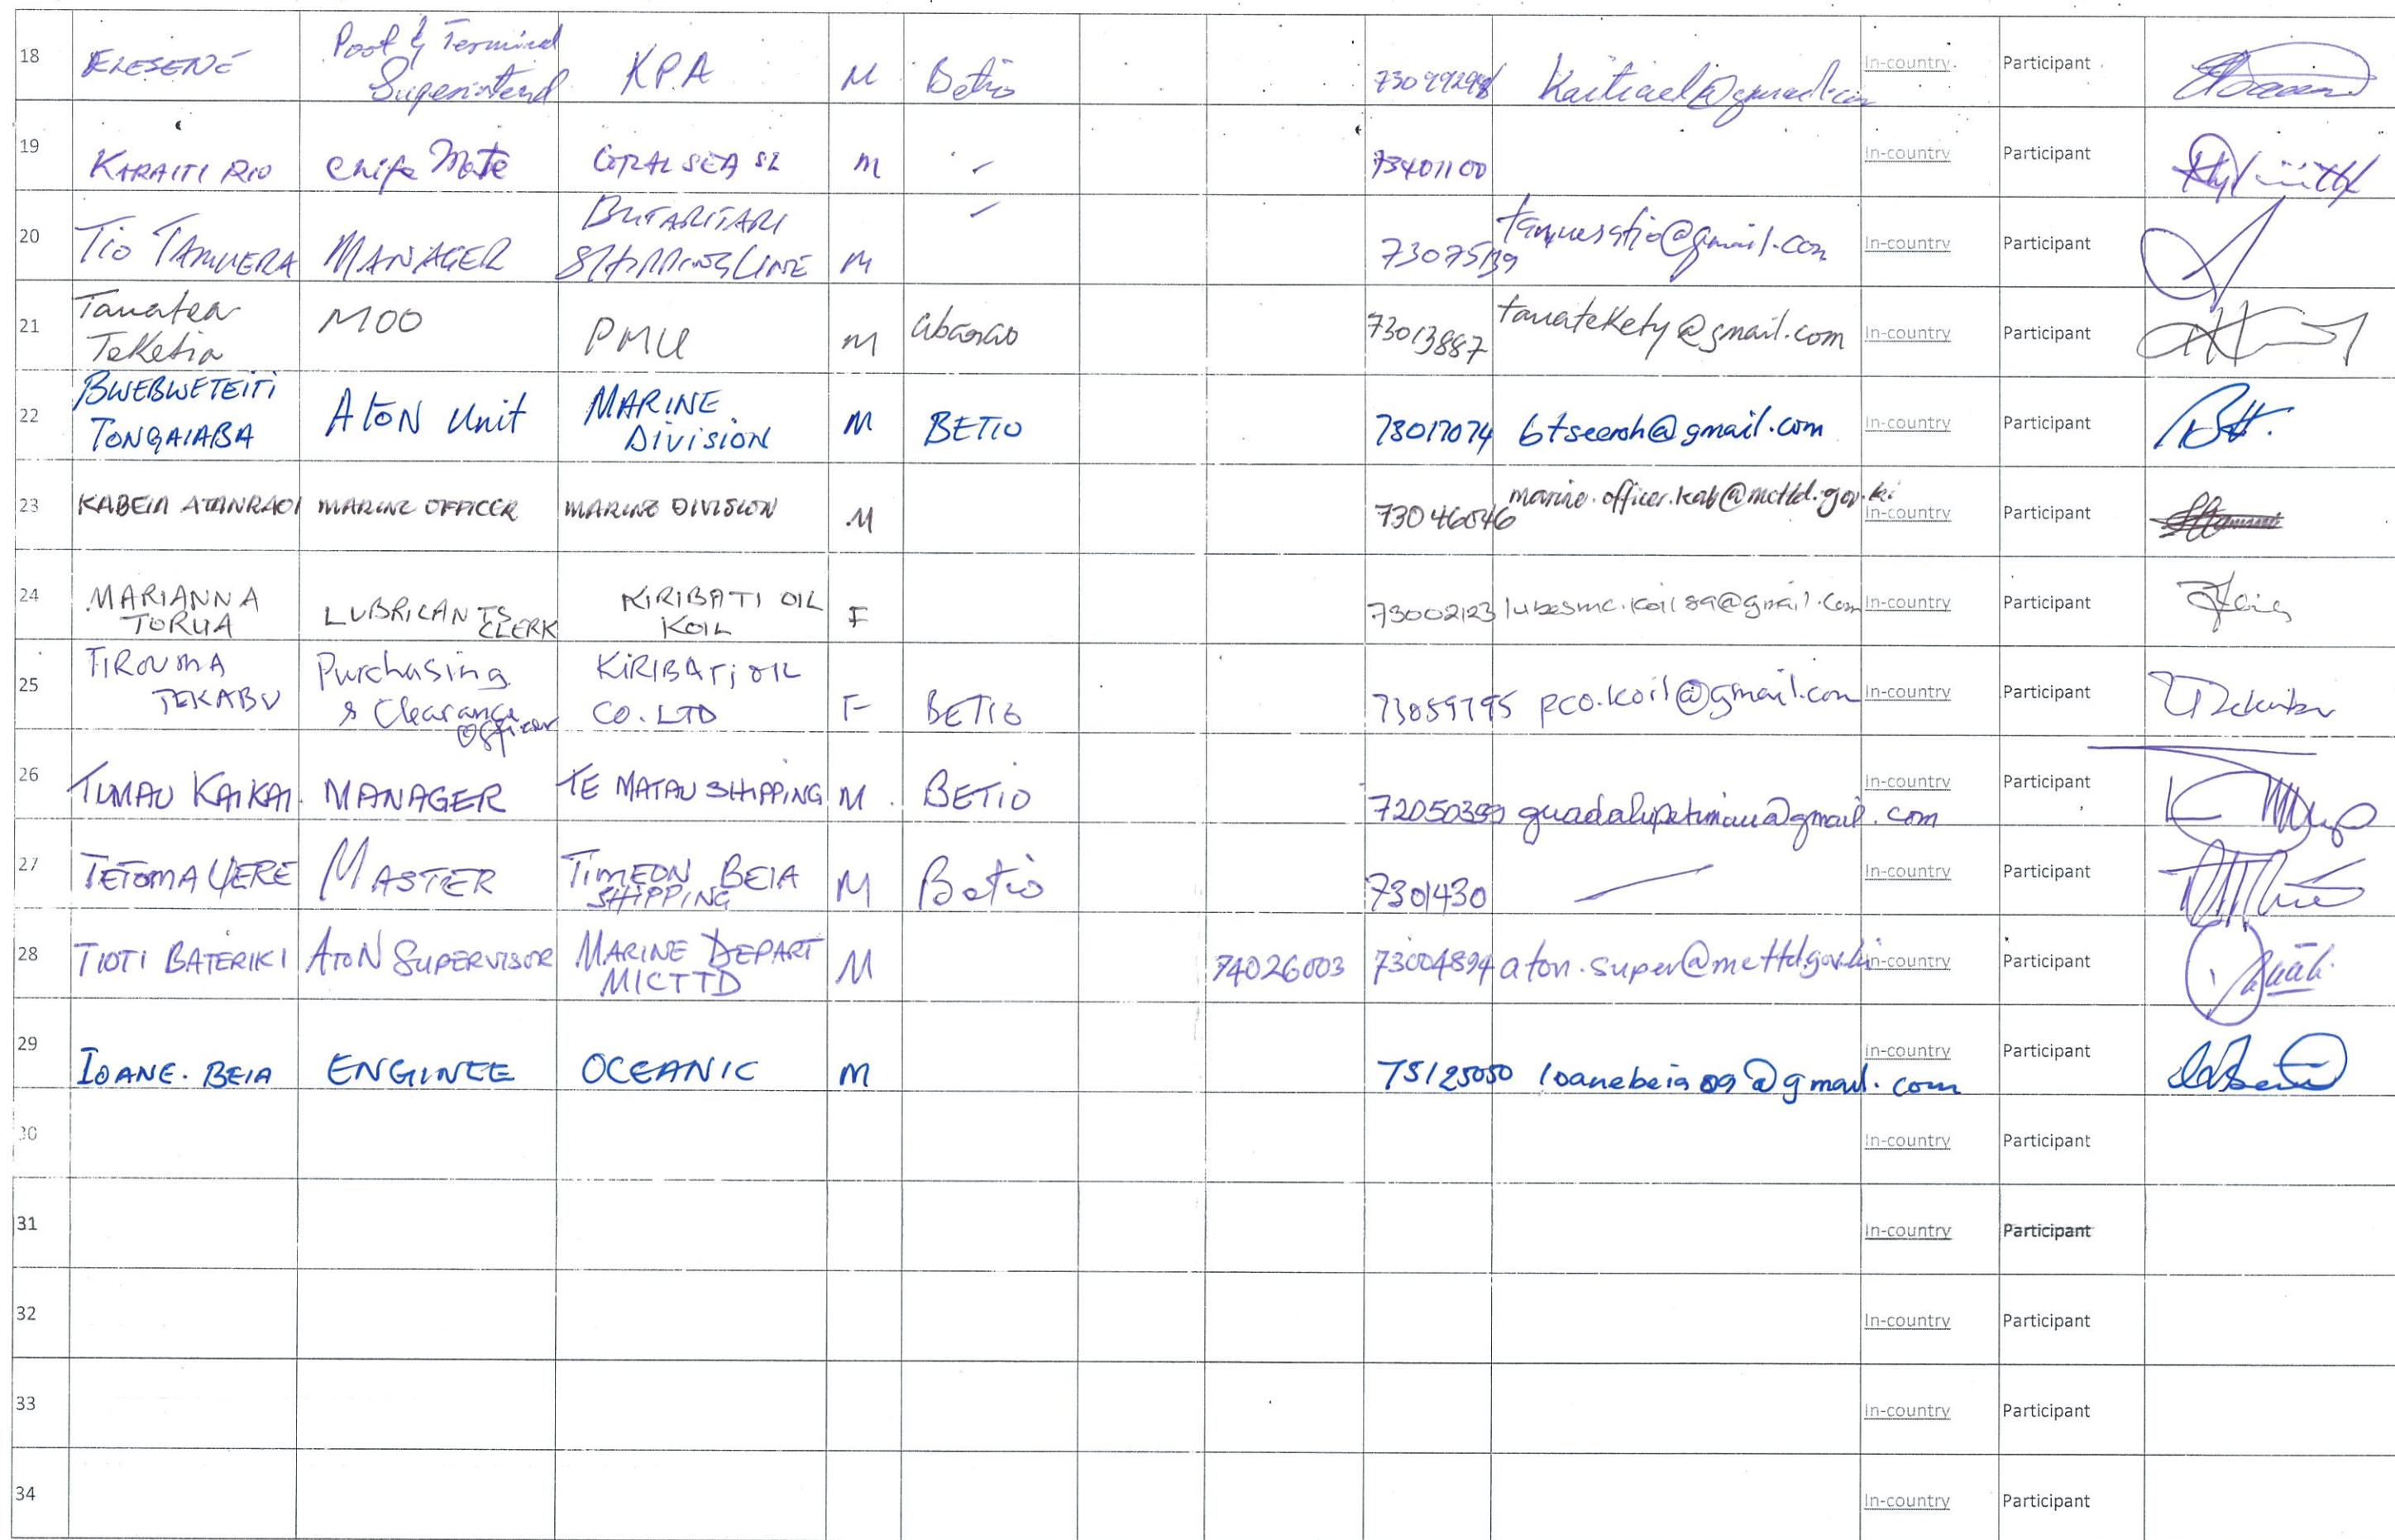 18 ELESENE Port & Terminal Superintend KPA M Betio In-country Participant
19 KARAITI RIO Chife Mate CORAL SEA SL M - 73401100 In-country Participant
20 TIO TAMUERA MANAGER BUTARITARI SHIPPING LINE M - 73075139 tamueratio@gmail.com In-country Participant
21 Tauatea Teketia MOO PMU M abarao 73013887 tauatekety@gmail.com In-country Participant
22 BWEBWETEITI TONGAIABA AtoN Unit MARINE DIVISION M BETIO 73017074 btseeroh@gmail.com In-country Participant
23 KABEIA ATANRAOI MARINE OFFICER MARINE DIVISION M 73046046 marine.officer.kab@mcttd.gov.ki In-country Participant
24 MARIANNA TORUA LUBRICANTS CLERK KIRIBATI OIL KOIL F 73002123 lubesmc.koil89@gmail.com In-country Participant
25 TIROUMA TEKABU Purchasing & Clearance Officer KIRIBATI OIL CO. LTD F BETIO 73059795 pco.koil@gmail.com In-country Participant
26 TIMAU KAIKAI. MANAGER TE MATAU SHIPPING M. BETIO 72050399 guadalupetimau@gmail.com In-country Participant
27 TETOMA UERE MASTER TIMEON BEIA SHIPPING M Betio 7301430 — In-country Participant
28 TIOTI BATERIKI AtoN SUPERVISOR MARINE DEPART MICTTD M 74026003 73004894 aton.super@mcttd.gov.ki In-country Participant
29 IOANE. BEIA ENGINEE OCEANIC M 75125050 Ioanebeia09@gmail.com In-country Participant
30 In-country Participant
31 In-country Participant
32 In-country Participant
33 In-country Participant
34 In-country Participant